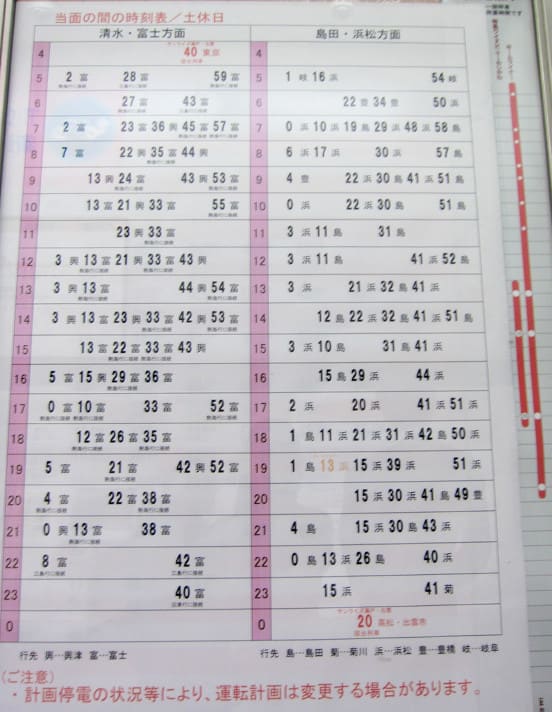 当面の間の時刻表／土休日
清水・富士方面 島田・浜松方面
サンライズ瀬戸・出雲
4 40 東京 4
寝台列車
5 2 富 28 富 59 富 5 1 岐 16 浜 54 岐
6 27 富 43 富 6 22 豊 34 豊 50 浜
7 2 富 23 富 36 興 45 富 57 富 7 0 浜 10 浜 19 島 29 浜 48 浜 58 島
8 7 富 22 興 35 富 44 興 8 6 浜 17 浜 30 浜 57 島
9 13 興 24 富 43 興 53 富 9 4 豊 22 浜 30 島 41 浜 51 島
10 13 富 21 興 33 富 55 富 10 0 浜 22 浜 30 島 51 島
11 23 興 33 富 11 3 浜 11 島 31 島
12 3 興 13 富 21 興 33 富 43 興 12 3 浜 11 島 41 浜 52 島
13 3 興 13 富 44 興 54 富 13 3 浜 21 浜 32 島 41 浜
14 3 興 13 富 23 興 33 富 42 興 53 富 14 12 島 22 浜 32 島 41 浜 51 島
15 13 富 22 富 33 富 43 興 15 3 浜 10 島 31 島 41 浜
16 5 富 15 興 29 富 36 富 16 15 島 29 浜 44 浜
17 0 富 10 富 33 富 52 富 17 2 浜 20 浜 41 浜 51 浜
18 12 富 26 富 35 富 18 1 島 11 浜 21 浜 31 浜 42 島 50 浜
19 5 富 21 富 42 興 52 富 19 1 島 13 浜 15 浜 39 浜 51 浜
20 4 富 22 富 38 富 20 15 浜 30 浜 41 島 49 豊
21 0 興 13 富 38 富 21 4 島 15 浜 30 島 43 浜
22 8 富 42 富 22 0 島 13 浜 26 島 40 浜
23 40 富 23 15 浜 41 菊
サンライズ瀬戸・出雲
0 0 20 高松・出雲市
寝台列車
行先 興…興津 富…富士 行先 島…島田 菊…菊川 浜…浜松 豊…豊橋 岐…岐阜
(ご注意)
・計画停電の状況等により、運転計画は変更する場合があります。